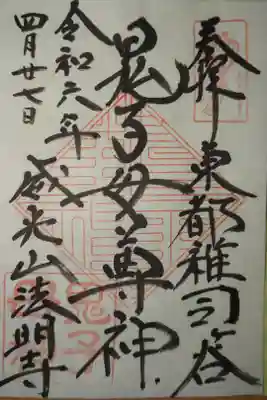 奉拝
東都雑司ヶ谷
鬼子母尊神
威光山法明寺
令和六年
四月廿七日